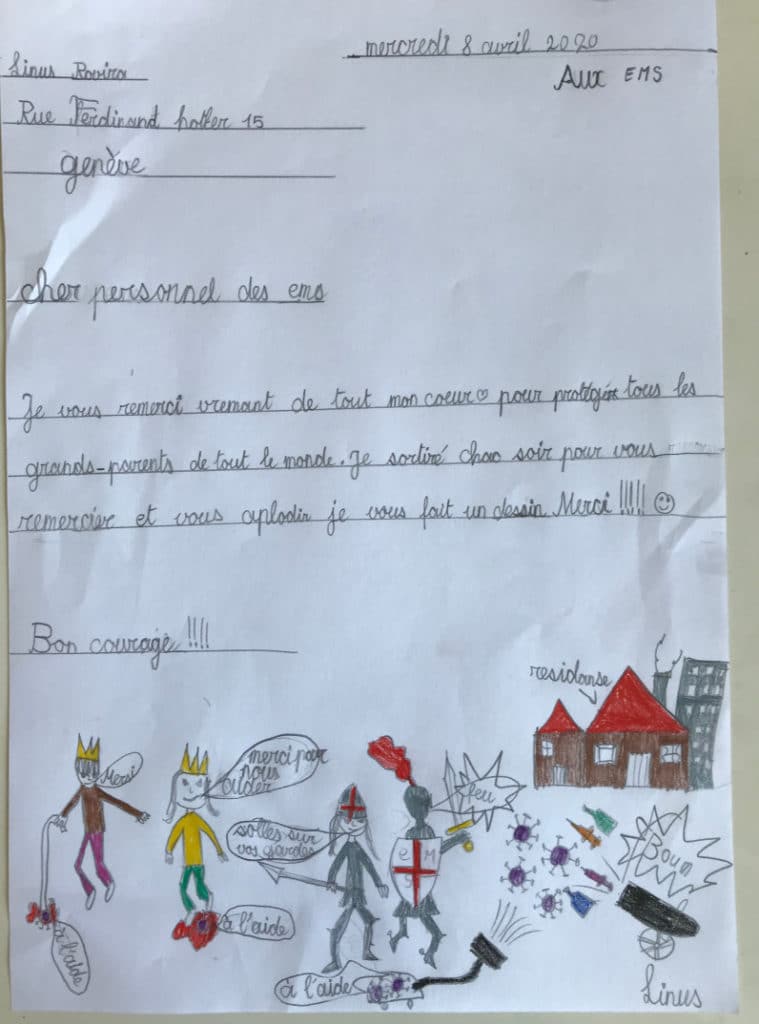 mercredi 8 avril 2020
Aux EMS
Linus Rovira
Rue Ferdinand hotler 15
genève
cher personnel des ems
Je vous remerci vremant de tout mon coeur♡ pour protégér tous les
grands-parents de tout le monde. Je sortiré chac soir pour vous
remercier et vous aplodir je vous fait un dessin Merci !!!!! ☺
Bon courage !!!!
residanse
Mersi
merci pour
nous
aider
soiles sur
vos gardes
feu
E M
S
Boum
à l'aide
à l'aide
à l'aide
Linus